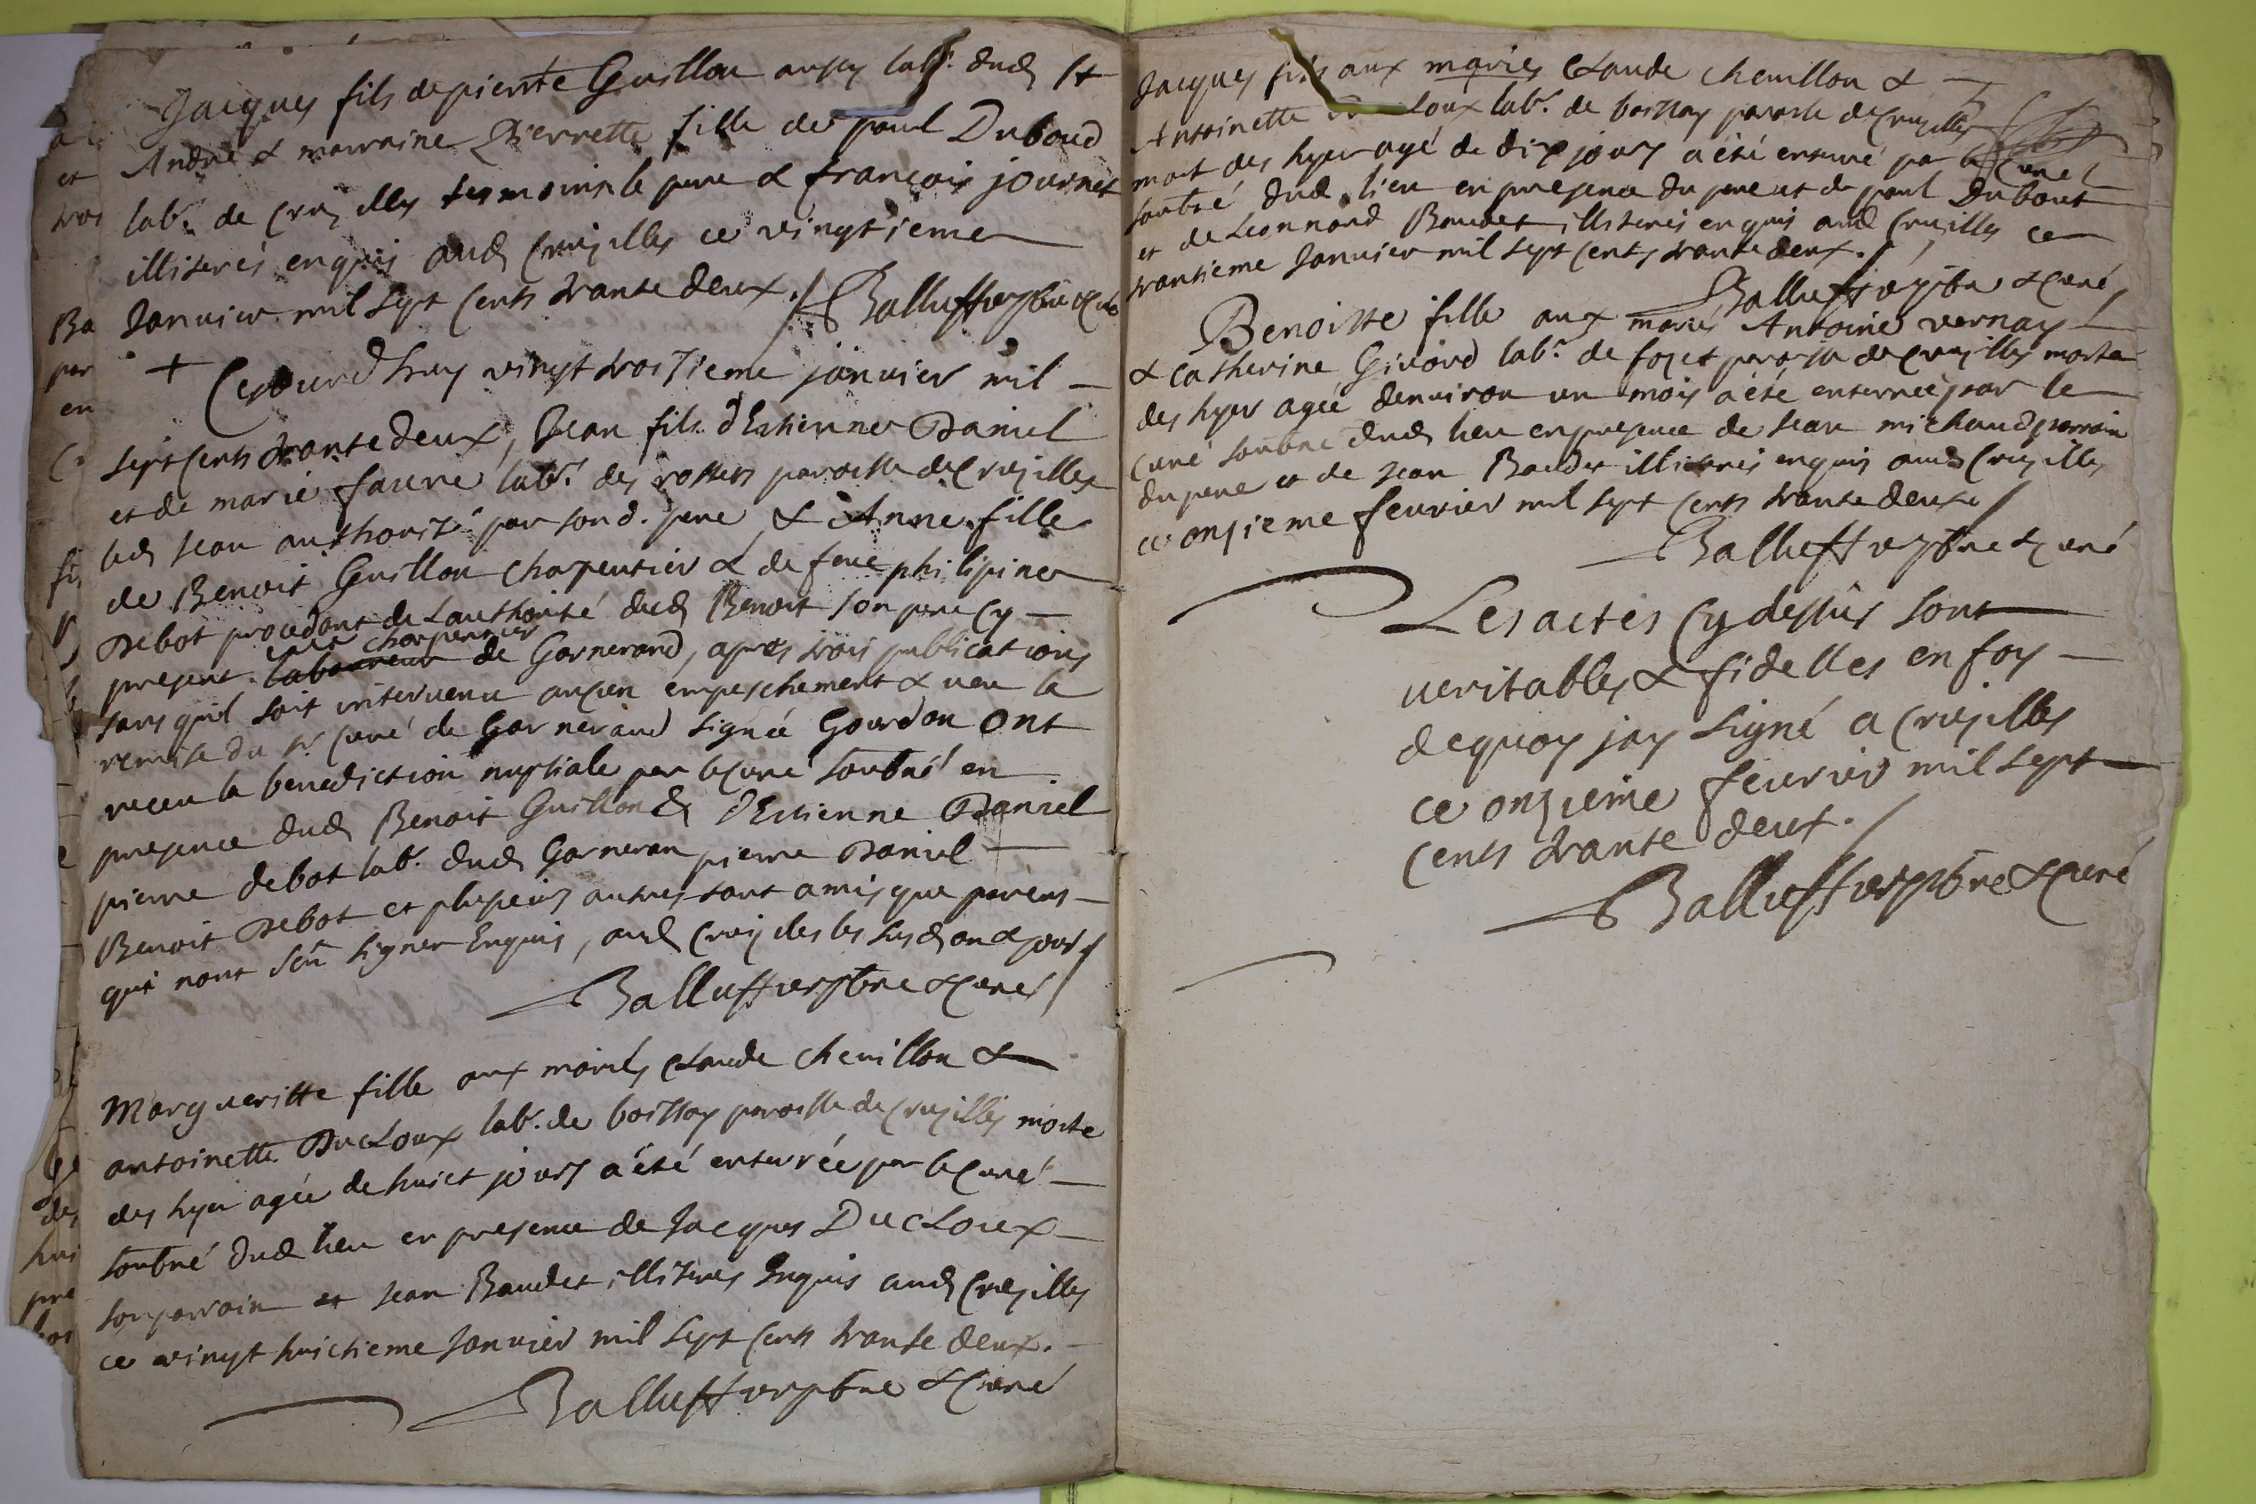 Jacques fils de pierrte Guillon aussy labr. dud St
André & marraine Pierrette fille de paul Duboud
labr. de Crusilles tesmoins le pere & françois journet
illiterés enquis aud Crusilles ce vingtieme
Janvier mil sept cents trante deux. Balluffier pbre & Curé
+ Cejourd'huy vingt troisieme janvier mil
sept cents trante deux, Jean fils d'Estienne Daniel
et de marie favre labr. des rossets paroisse de Crusilles
led Jean authorisé par sond. pere & Anne fille
de Benoit Guillon charpentier & de feue philipine
Debot procedant de Lauthorité dud Benoit son pere Cy
present. laboureur charpentier de Garnerand, apres trois publications
sans quil soit intervenu aucun empeschement & veu la
remise du sr Curé de Garnerand signée Gourdon ont
receu la benediction nuptiale par le Curé soubné en
presence dud Benoit Guillon & d'Estienne Daniel
pierre debot labr. dud Garneran pierre Daniel
Benoit Debot et plusieurs autres tant amis que parens
qui nont sçu signer Enquis, aud Crusilles les susd an & jour
Balluffier pbre & Curé
Margueritte fille aux mariés Claude chevillon &
antoinette DucLoux labr. de boissay paroisse de Crusilles morte
des hyer agée de huict jours a été enterrée par le Curé
soubné dud lieu en presence de Jacques DucLoux
son parrain et Jean Baudet illiterés Enquis aud Crusilles
ce vingt huictieme Janvier mil sept cents trante deux.
Balluffier pbre & Curé
Jacques fils aux mariés Claude chevillon &
Antoinette loux labr. de boissay paroisse de Crusilles
mort des hyer agé de dix jours a été enterré par le Curé
soubné dud lieu en presence du pere et de paul Dubout
et de Leonnard Baudet illiterés enquis aud Crusilles ce
trantieme Janvier mil sept cents trante deux.
Balluffier pbre & Curé
Benoitte fille aux mariés Antoine vernay
& catherine Girord labr. de foget paroisse de Crusilles morte
des hyer agée denviron un mois a été enterrée par le
Curé soubné dud lieu en presence de Jean michaud parrain
du pere et de Jean Baudet illiterés enquis aud Crusilles
ce onzieme fevrier mil sept cents trante deux
Balluffier pbre & Curé
Les actes Cy dessûs sont
veritables & fidelles en foy
dequoy jay signé a Crusilles
ce onzieme fevrier mil sept
cents trante deux.
Balluffier pbre & Curé